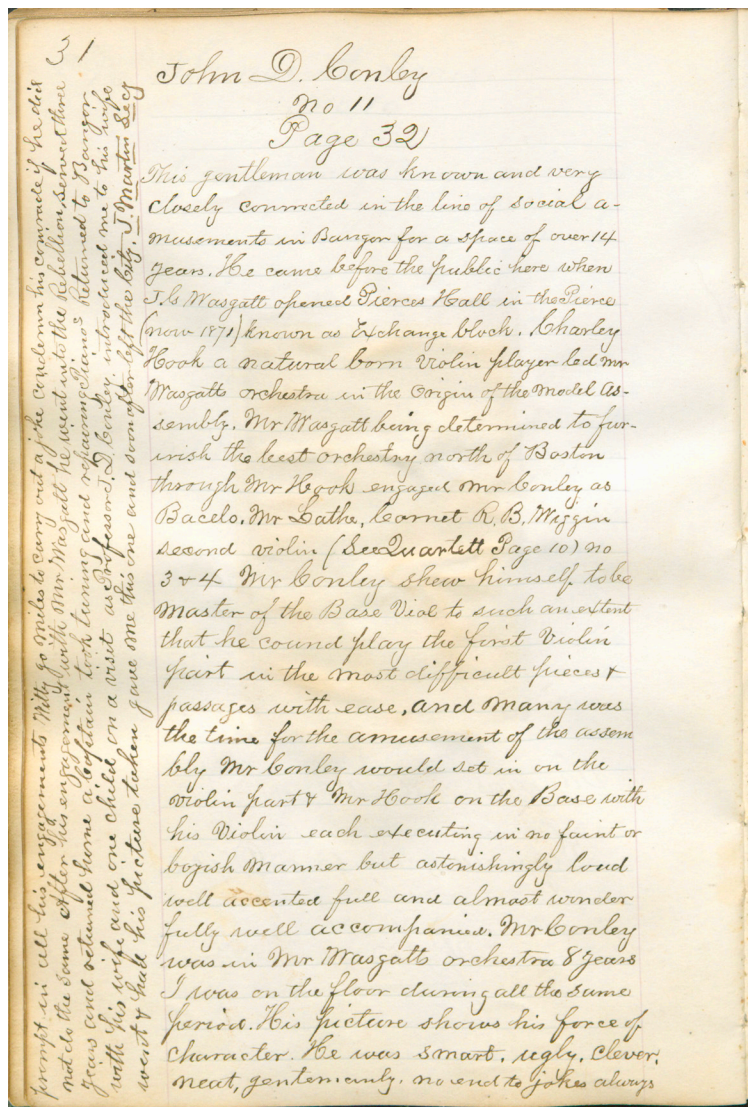 31
John D. Conley
No 11
Page 32
This gentleman was known and very
closely connected in the line of social a-
musements in Bangor for a space of over 14
years. He came before the public here when
J. G. Wasgatt opened Pierces Hall in the Pierce
(now 1871) known as Exchange block. Charley
Hook a natural born violin player led Mr
Wasgatts orchestra in the Origin of the Model As-
sembly. Mr Wasgatt being determined to fur-
nish the best orchestry north of Boston
through Mr Hook engaged Mr Conley as
Bacelo. Mr Lathe, Cornet R. B. Wiggin
second violin (See Quartett Page 10) no
3 & 4 Mr Conley shew himself to be
Master of the Base Viol to such an extent
that he cound play the first Violin
part in the most difficult pieces &
passages with ease, and many was
the time for the amusement of the assem
bly Mr Conley would set in on the
violin part & Mr Hook on the Base with
his Violin each executing in no faint or
bogish manner but astonishingly loud
well accented full and almost wonder
fully well accompanied. Mr Conley
was in Mr Wasgatts orchestra 8 years
I was on the floor during all the same
period. His picture shows his force of
character. He was smart, ugly, clever,
neat, gentemanly. no end to jokes always
prompt in all his engagements Witty go miles to carry out a joke condemn his comrade if he did
not do the same After his engagement with Mr. Wasgatt he went into the Rebellion served three
years and returned home a Captain took tuning and repairing Piano's Returned to Bangor
with his wife and one child on a visit as Professor J. D. Conley introduced me to his wife
went & had his picture taken gave me this one and soon after left the city. J Martin Secy